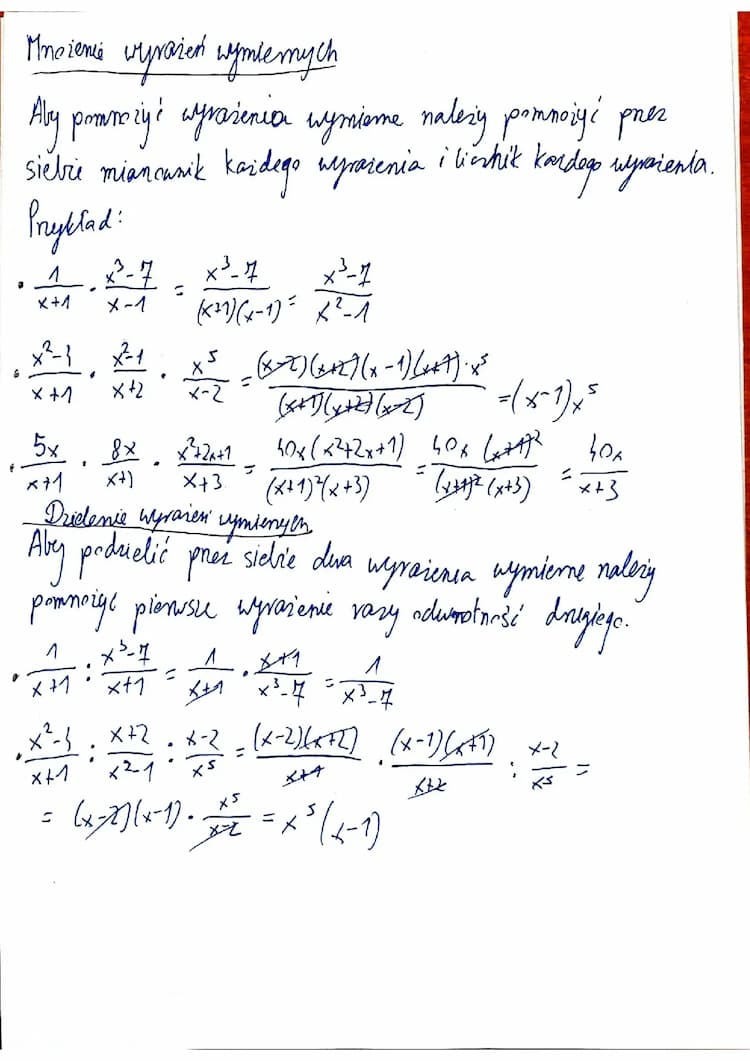 Mnożenie wyrażeń wymiernych
Aby pomnożyć wyrażenia wymierne należy pomnożyć przez
siebie mianownik każdego wyrażenia i licznik każdego wyrażenia.
Przykład:
• 1/(x+1) · (x³-7)/(x-1) = (x³-7)/((x+1)(x-1)) = (x³-7)/(x²-1)
• (x²-4)/(x+1) · (x²-1)/(x+2) · x⁵/(x-2) = ((x-2)(x+2)(x-1)(x+1)·x⁵)/((x+1)(x+2)(x-2)) = (x-1)x⁵
• 5x/(x+1) · 8x/(x+1) · (x²+2x+1)/(x+3) = 40x(x²+2x+1)/((x+1)²(x+3)) = 40x(x+1)²/((x+1)²(x+3)) = 40x/(x+3)
Dzielenie wyrażeń wymiernych
Aby podzielić przez siebie dwa wyrażenia wymierne należy
pomnożyć pierwsze wyrażenie razy odwrotność drugiego.
• 1/(x+1) : (x³-7)/(x+1) = 1/(x+1) · (x+1)/(x³-7) = 1/(x³-7)
• (x²-4)/(x+1) : (x+2)/(x²-1) : (x-2)/x⁵ = (x-2)(x+2)/(x+1) · (x-1)(x+1)/(x+2) : (x-2)/x⁵ =
= (x-2)(x-1) · x⁵/(x-2) = x⁵(x-1)